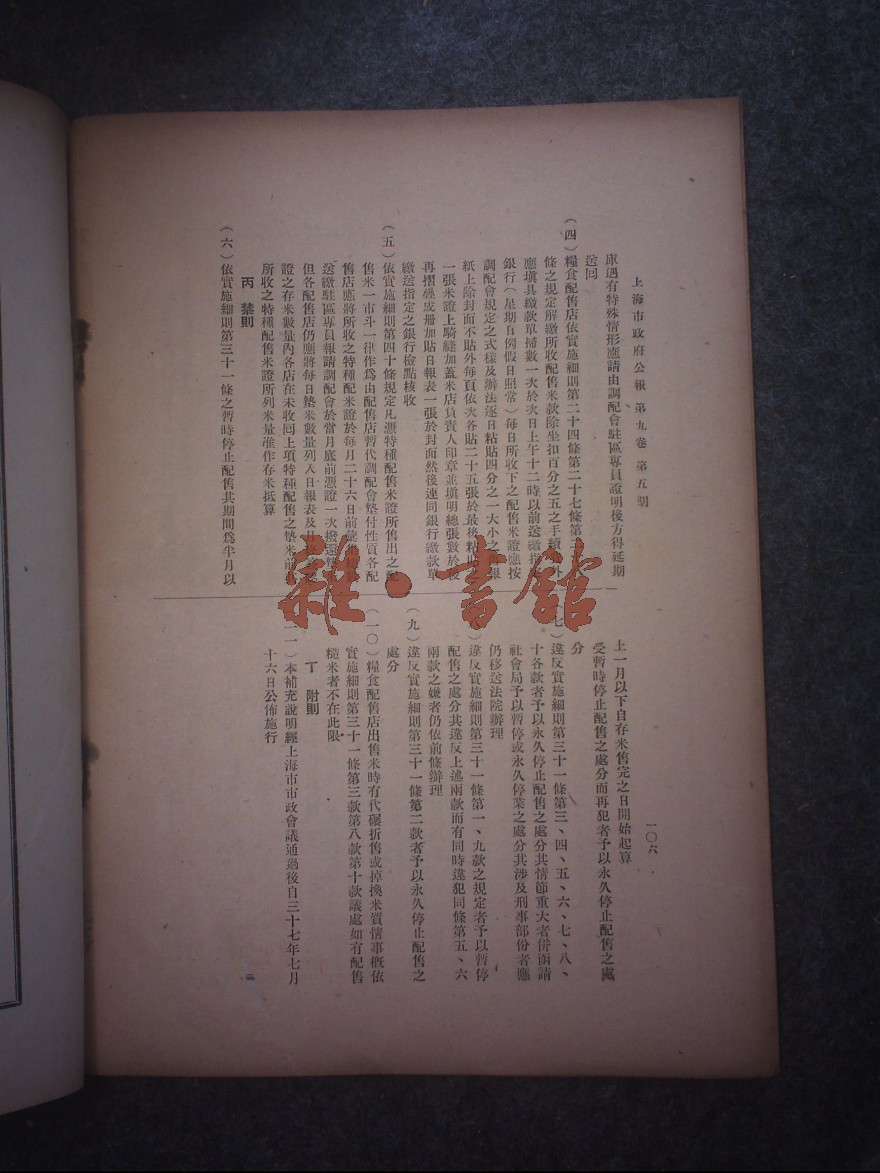 上海市政府公報 第九卷 第五期
一〇六
庫遇有特殊情形應請由調配會駐區專員證明後方得延期
送回
(四)糧食配售店依實施細則第二十四條第二十七條第二
條之規定解繳所收配售米款除坐扣百分之五之手續
應填具繳款單掃數一次於次日上午十二時以前送繳指
銀行(星期日例假日照常)每日所收下之配售米證應按
調配會規定之式樣及辦法逐日粘貼四分之一大小之報
紙上除封面不貼外每頁依次各貼二十五張於最後粘貼
一張米證上騎縫加蓋米店負責人印章並填明總張數於後
再摺疊成冊加貼日報表一張於封面然後連同銀行繳款單
繳送指定之銀行檢點核收
(五)依實施細則第四十條規定凡憑特種配售米證所售出之配
售米一市斗一律作為由配售店暫代調配會墊付性質各配
售店應將所收之特種配米證於每月二十六日前
送繳駐區專員報請調配會於當月底前憑證一次撥還墊
但各配售店仍應將每日墊米數量列入日報表及
證之存米數量內各店在未收回上項特種配售之墊米前
所收之特種配售米證所列米量准作存米抵算
丙 禁則
(六)依實施細則第三十一條之暫時停止配售其期間為半月以
上一月以下自存米售完之日開始起算
受暫時停止配售之處分而再犯者予以永久停止配售之處
分
七)違反實施細則第三十一條第三、四、五、六、七、八、
十各款者予以永久停止配售之處分其情節重大者併函請
社會局予以暫停或永久停業之處分其涉及刑事部份者應
仍移送法院辦理
)違反實施細則第三十一條第一、九款之規定者予以暫停
配售之處分其違反上述兩款而有同時違犯同條第五、六
兩款之嫌者仍依前條辦理
(九)違反實施細則第三十一條第二款者予以永久停止配售之
處分
(一〇)糧食配售店出售米時有代碾折售或掉換米質情事概依
實施細則第三十一條第三款第八款第十款議處如有配售
糙米者不在此限
丁 附則
一)本補充說明經上海市市政會議通過後自三十七年七月
十六日公佈施行
雜·書館